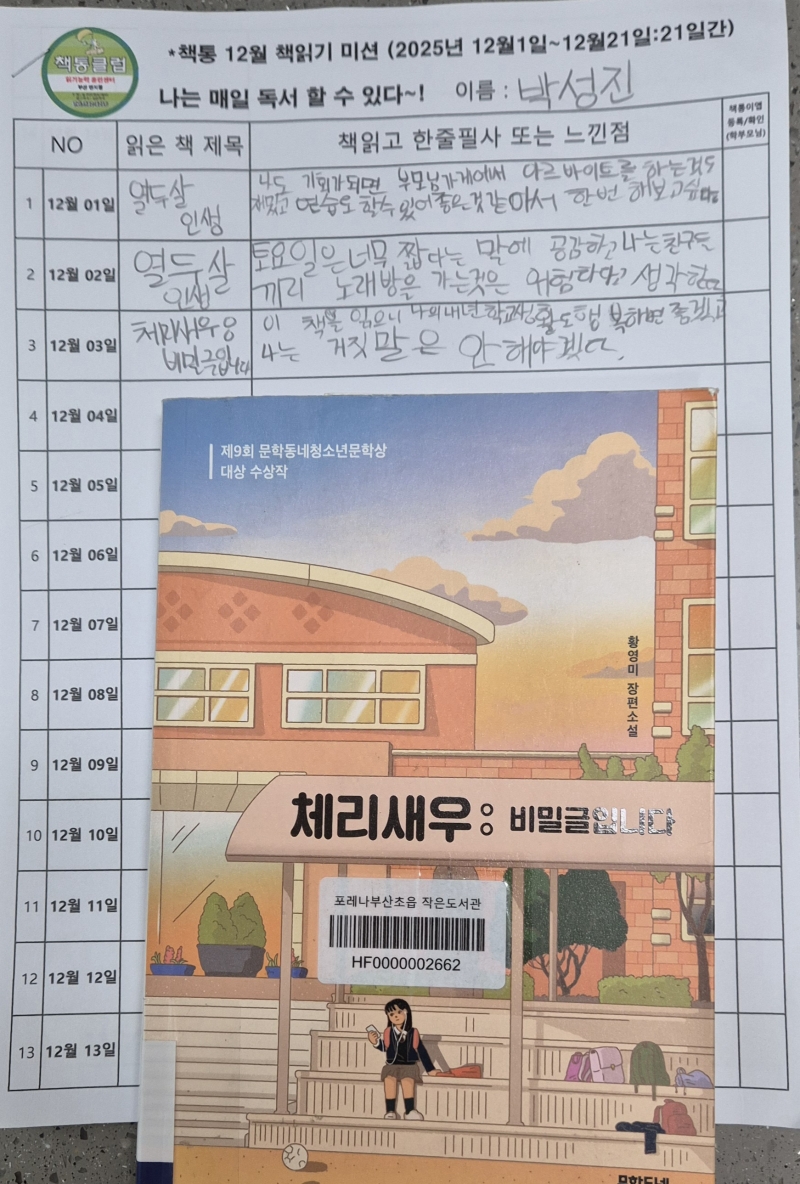 책통클럽
읽기능력 훈련센터
*책통 12월 책읽기 미션 (2025년 12월1일~12월21일:21일간)
나는 매일 독서 할 수 있다~! 이름 : 박성진
NO 읽은 책 제목 책읽고 한줄필사 또는 느낀점 책통이앱 등록/확인 (학부모님)
1 12월 01일 열두살 인생
나도 기회가되면 부모님가게에서 아르바이트를 하는것도
재밌고 연습도 할수 있어 좋은것같아서 한번 해보고싶다
2 12월 02일 열두살 인생
토요일은 너무 짧다는 말에 공감하고 나는 친구들
끼리 노래방을 가는것은 위험하다고 생각한다
3 12월 03일 체리새우: 비밀글입니다
이 책을 읽으니 나의 내년 학교생활도 행복하면 좋겠고
나는 거짓말은 안해야겠다.
4 12월 04일
5 12월 05일
6 12월 06일
7 12월 07일
8 12월 08일
9 12월 09일
10 12월 10일
11 12월 11일
12 12월 12일
13 12월 13일
제9회 문학동네청소년문학상
대상 수상작
황영미 장편소설
체리새우: 비밀글입니다
포레나부산초읍 작은도서관
HF0000002662
문학동네